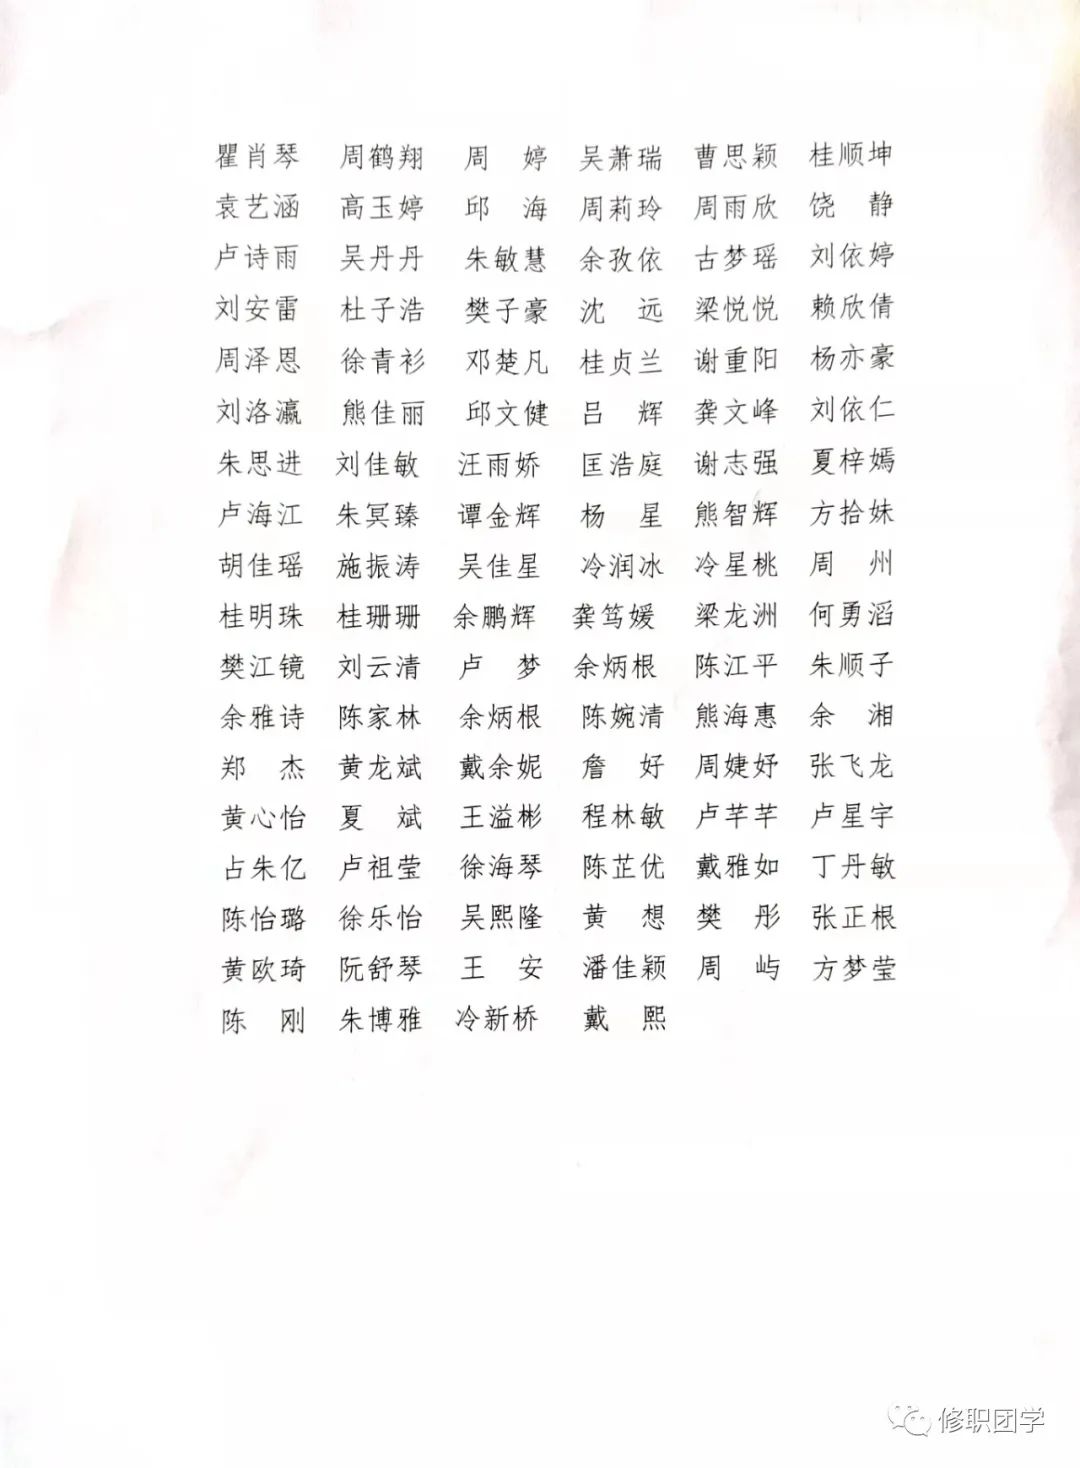 瞿肖琴 周鹤翔 周 婷 吴萧瑞 曹思颖 桂顺坤
袁艺涵 高玉婷 邱 海 周莉玲 周雨欣 饶 静
卢诗雨 吴丹丹 朱敏慧 余孜依 古梦瑶 刘依婷
刘安雷 杜子浩 樊子豪 沈 远 梁悦悦 赖欣倩
周泽恩 徐青衫 邓楚凡 桂贞兰 谢重阳 杨亦豪
刘洛瀛 熊佳丽 邱文健 吕 辉 龚文峰 刘依仁
朱思进 刘佳敏 汪雨娇 匡浩庭 谢志强 夏梓嫣
卢海江 朱冥臻 谭金辉 杨 星 熊智辉 方拾妹
胡佳瑶 施振涛 吴佳星 冷润冰 冷星桃 周 州
桂明珠 桂珊珊 余鹏辉 龚笃媛 梁龙洲 何勇滔
樊江镜 刘云清 卢 梦 余炳根 陈江平 朱顺子
余雅诗 陈家林 余炳根 陈婉清 熊海惠 余 湘
郑 杰 黄龙斌 戴余妮 詹 好 周婕妤 张飞龙
黄心怡 夏 斌 王溢彬 程林敏 卢芊芊 卢星宇
占朱亿 卢祖莹 徐海琴 陈芷优 戴雅如 丁丹敏
陈怡璐 徐乐怡 吴熙隆 黄 想 樊 彤 张正根
黄欧琦 阮舒琴 王 安 潘佳颖 周 屿 方梦莹
陈 刚 朱博雅 冷新桥 戴 熙
修职团学